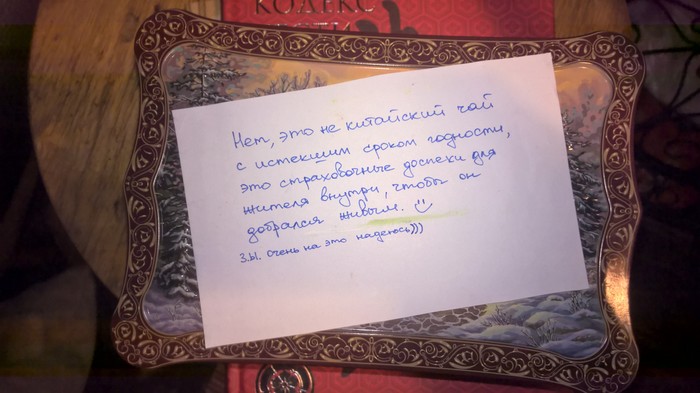 КОДЕКС
Нет, это не китайский чай
с истекшим сроком годности,
это страховочные доспехи для
жителя внутри, чтобы он
добрался живым.
З.Ы. очень на это надеюсь)))